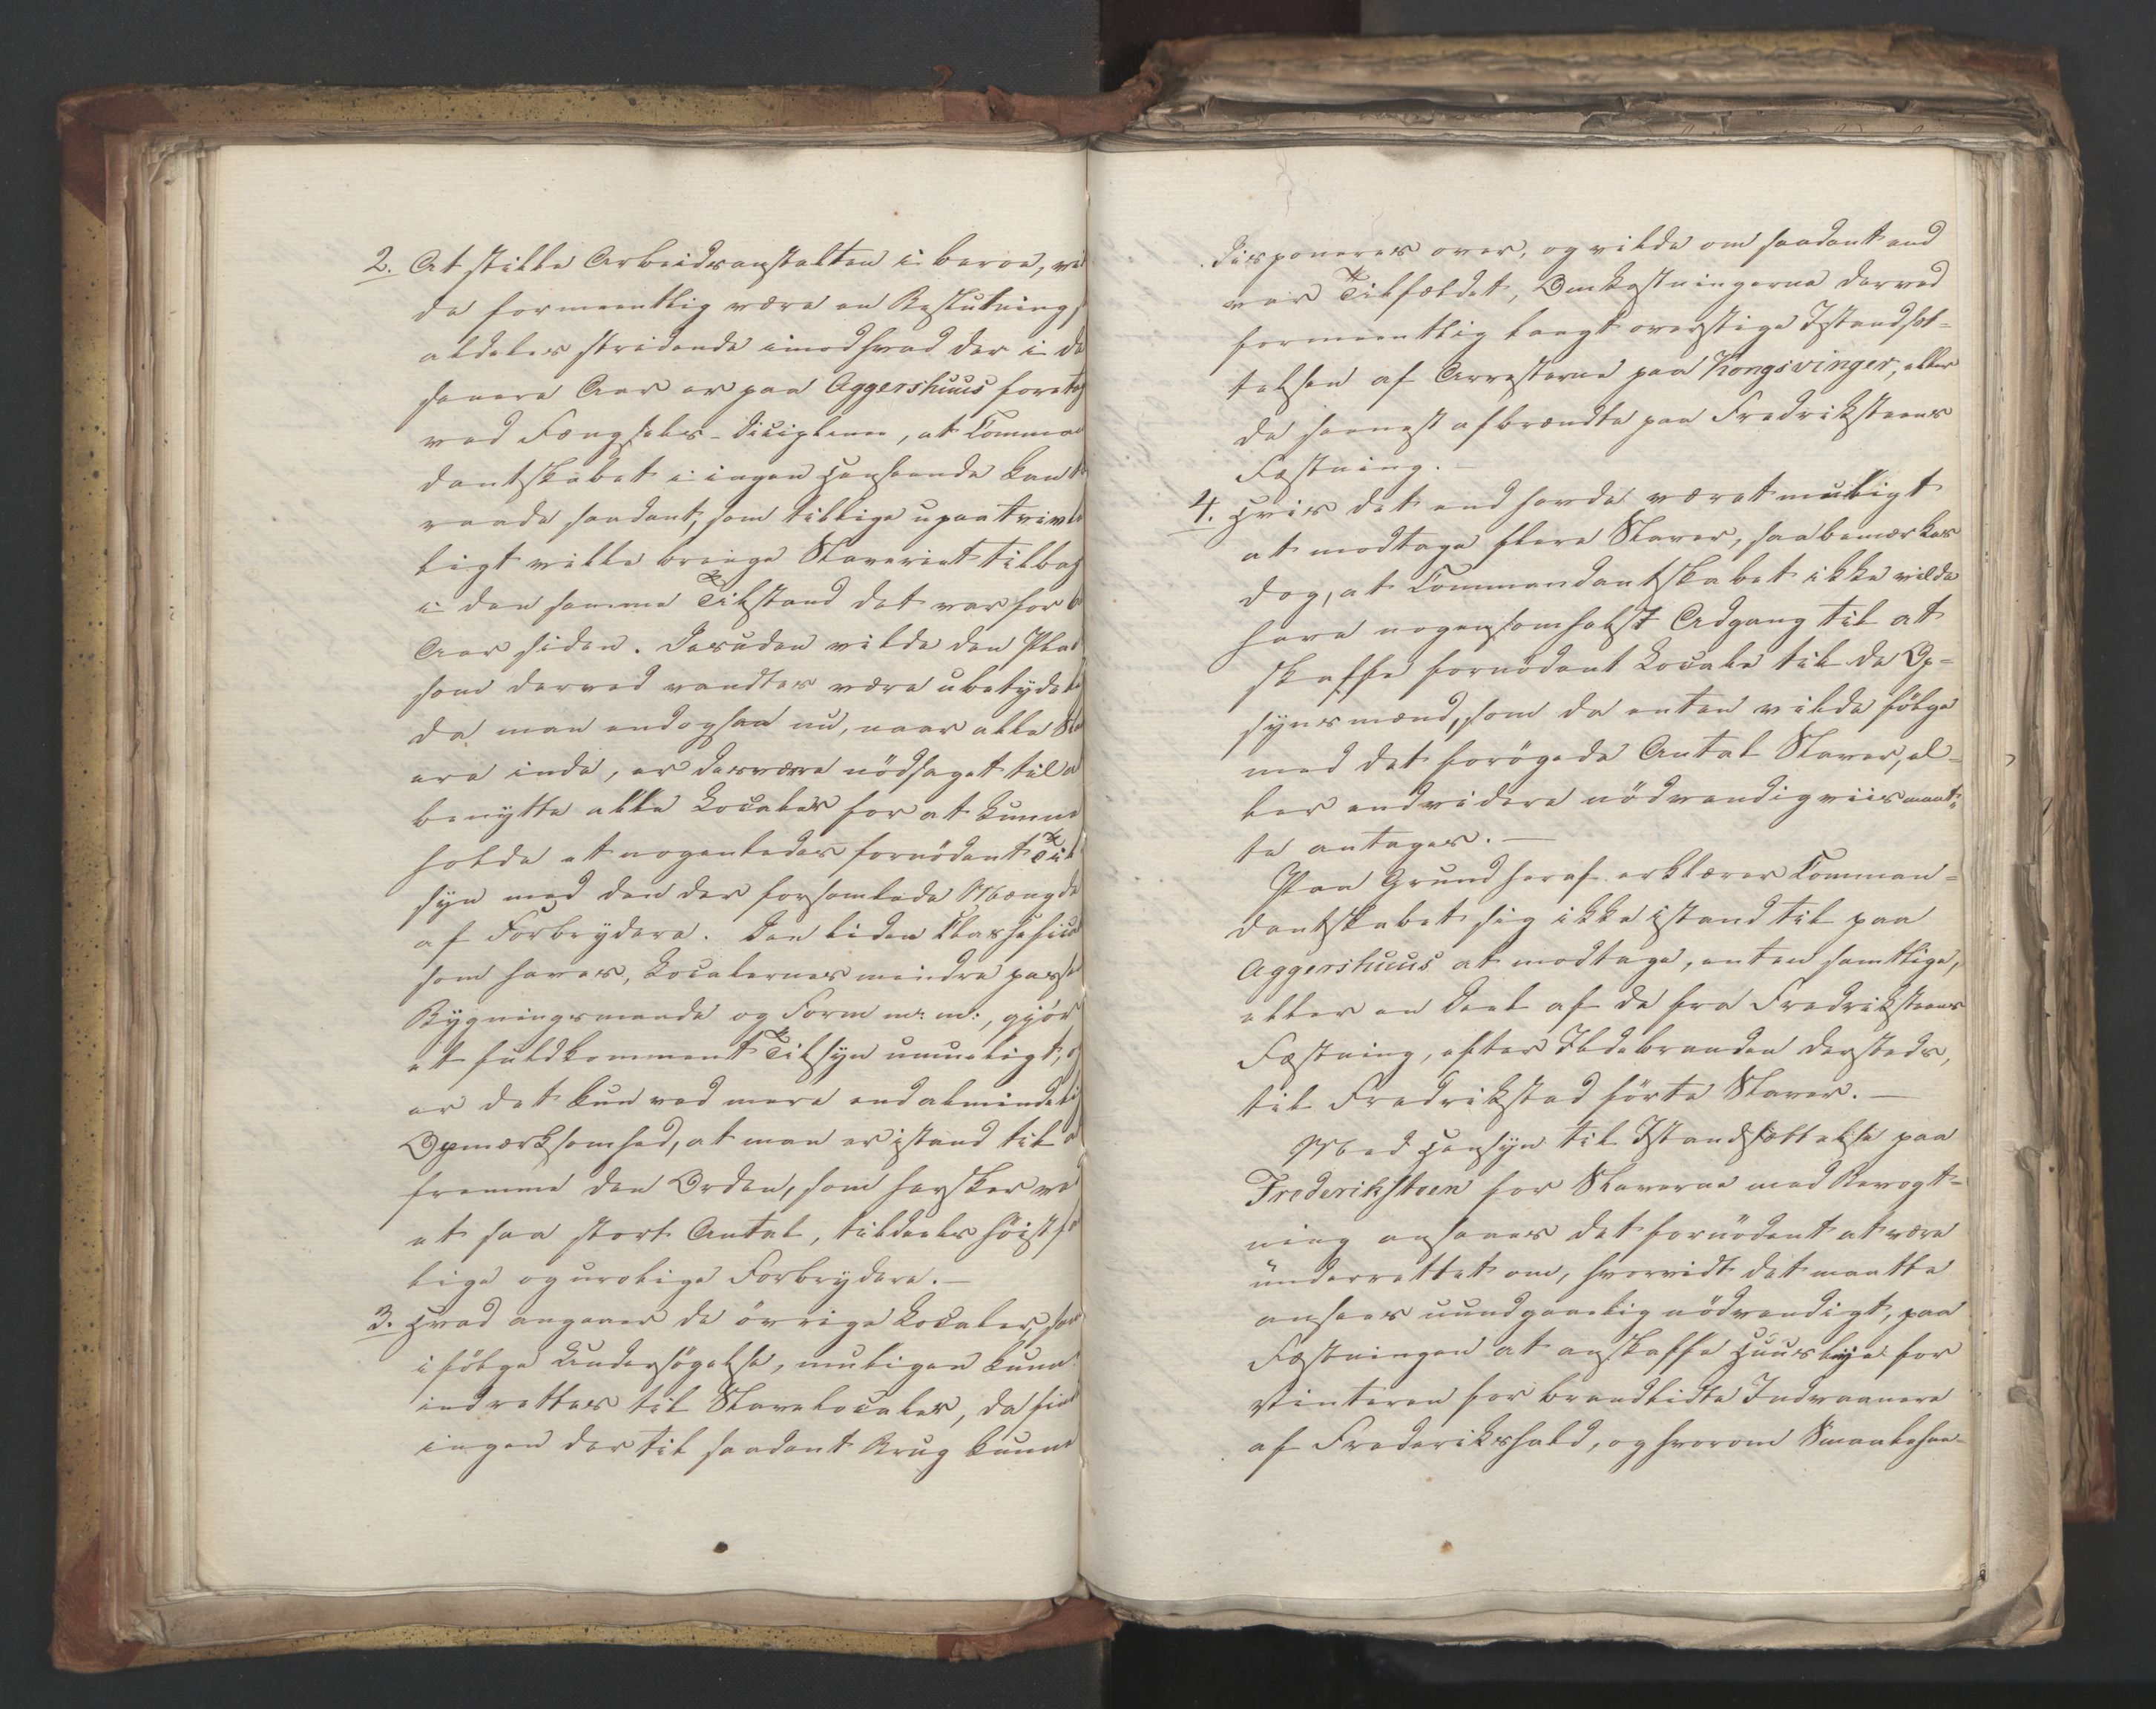 2. At stille Arbeidsanstalten i beroe, vil
de formeentlig være en Beslutning,
aldeles stridende imod hvad der i de
senere Aar er paa Aggershuus foretag
ved Fængsels-Diciplinen, at Comman
dantskabet i ingen Henseende kan til
raade saadant, som tillige upaatvivle
ligt ville bringe Slaveriet tilbag
i den samme Tilstand det var for
Aar siden. Desuden vilde den Plads
som derved vandtes være ubetydelig
da man endogsaa nu, naar alle Sla
ere inde, er desværre nödsaget til a
benytte alle Locales for at kunne
holde et nogenledes fornödent Til
syn med den der forsamlede Mængde
af Forbrydere. Den liden Classificat
som haves, Localernes mindre passe
Bygningsmaade og Form m: m:, gjör
et fuldkomment Tilsyn umueligt, og
er det kun ved mere end almindelig
Opmærksomhed, at man er istand til a
fremme den Orden, som hersker ve
et saa stort Antal, tildeels höist far
lige og urolige Forbrydere. —
3. Hvad angaaer de övrige Localer, som
ifölge Undersögelse, muligen kunne
indrettes til Slavelocaler, da find
ingen der til saadant Brug kunne
disponeres over, og vilde om saadant end
var Tilfældet, Omkostningerne derved
formeentlig langt overstige Istandsæt=
telsen af Arresterne paa Kongsvinger, eller
de seenest afbrændte paa Fredriksteens
Fæstning. —
4. Hvis det end havde været muligt
at modtage flere Slaver, saa bemærkes
dog, at Commandantskabet ikke vilde
have nogensomhelst Adgang til at
skaffe fornödent Locale til de Op=
synsmænd, som da enten vilde fölge
med det forögede Antal Slaver, el=
ler endvidere nödvendigviis maat=
te antages. —
Paa Grund heraf erklærer Comman=
dantskabet sig ikke istand til paa
Aggershuus at modtage, enten samtlige,
eller en Deel af de fra Fredriksteens
Fæstning, efter Ildebranden dersteds,
til Fredrikstad förte Slaver. —
Med Hensyn til Istandsættelse paa
Frederiksteen for Slaverne med Bevogt=
ning ansees det fornödent at være
underrettet om, hvorvidt det maatte
ansees uundgaaelig nödvendigt, paa
Fæstningen at anskaffe Huuslye for
Vinteren for brandlidte Indvaanere
af Frederikshald, og hvorom Smaalehne=